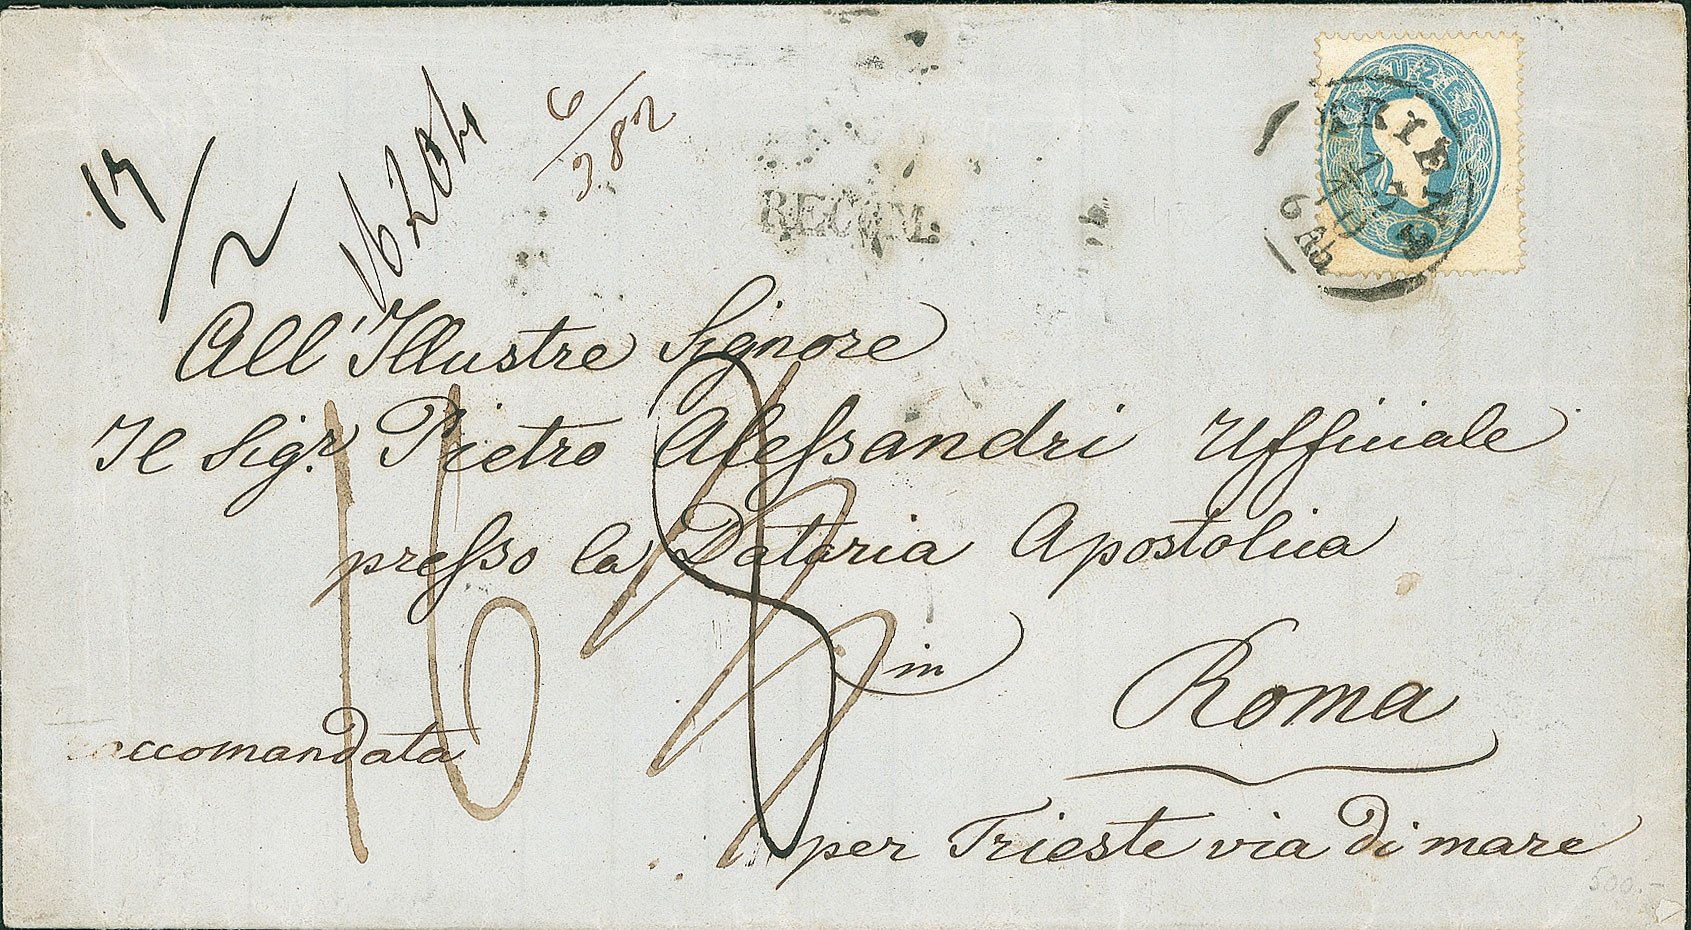 17/2
16204
6/382
RECOM.
KREUZER
WIEN
6 Ab
All' Illustre Signore
Il Sigr. Pietro Alessandri Ufficiale
presso la Dataria Apostolica
in
Roma
raccomandata
16
8
per Trieste via di mare
500.-